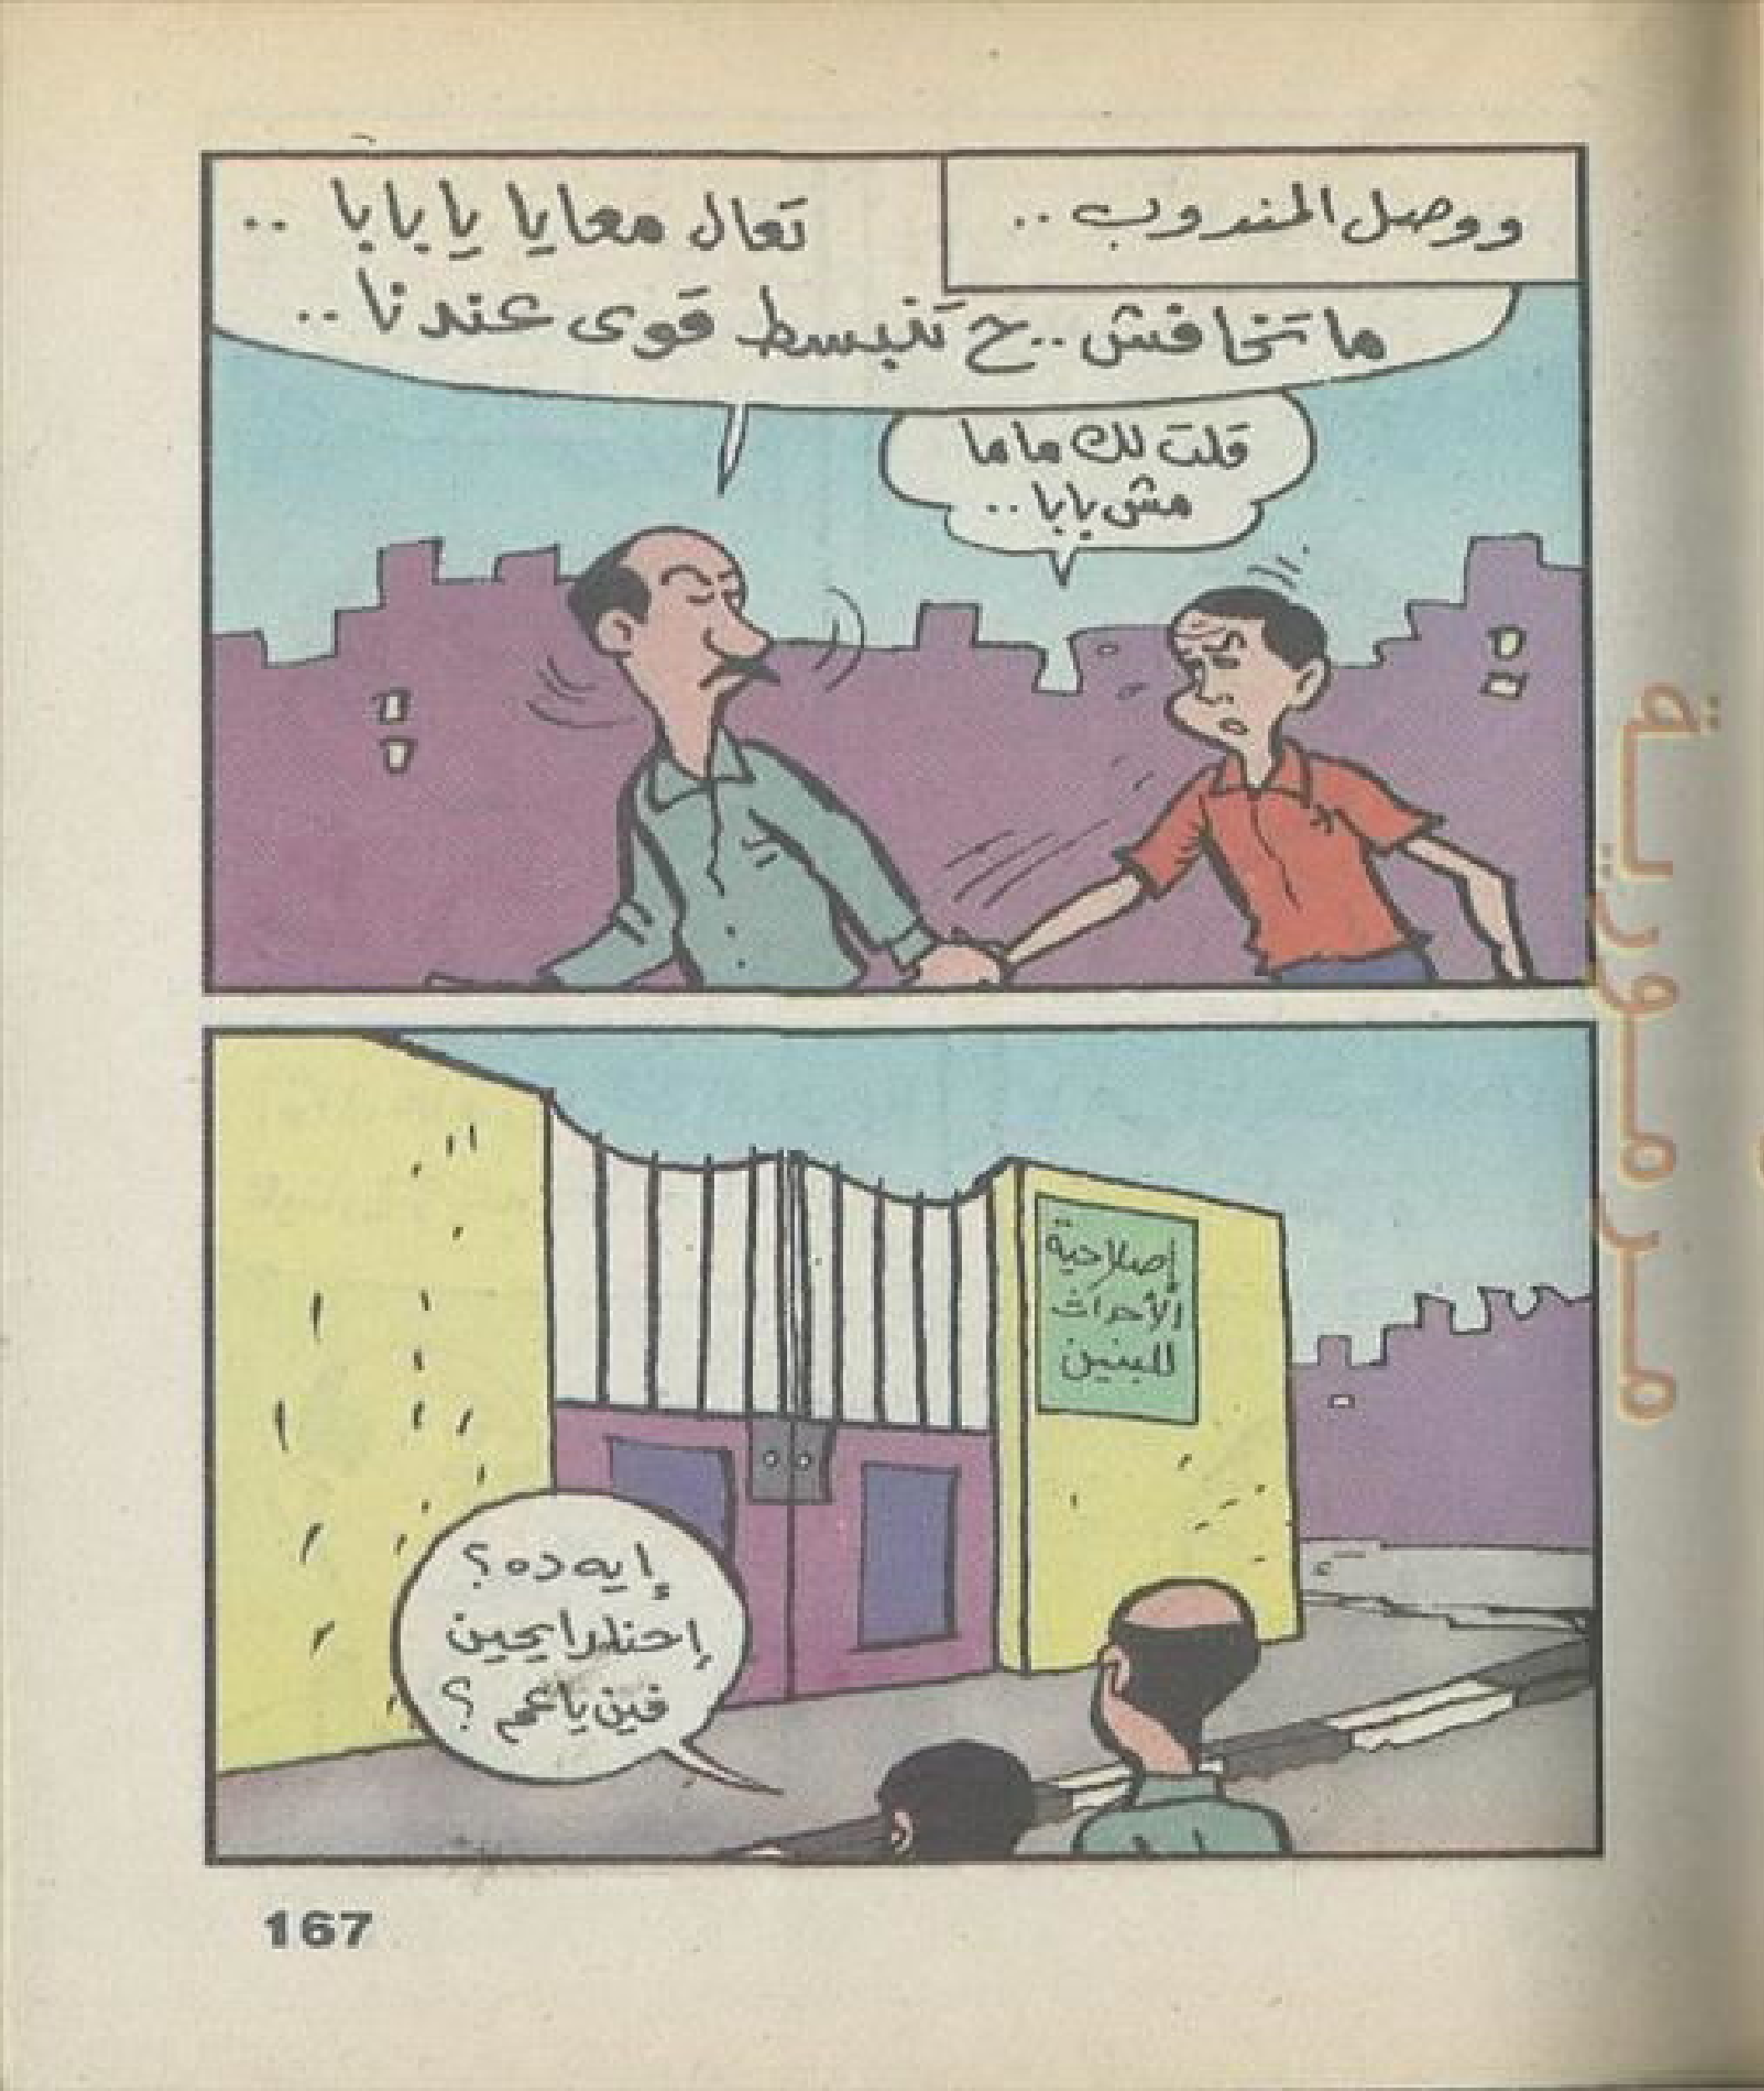 ووصل المندوب ..
تَعال معايا يا بابا ..
ما تَخافش .. ح تَنبسط قَوى عندنا ..
قلتَ لك ماما
مش بابا ..
إصلاحية
الأحداث
للبنين
إيه ده ؟
إحنا رايحين
فين يا عم ؟
167
مرمورية